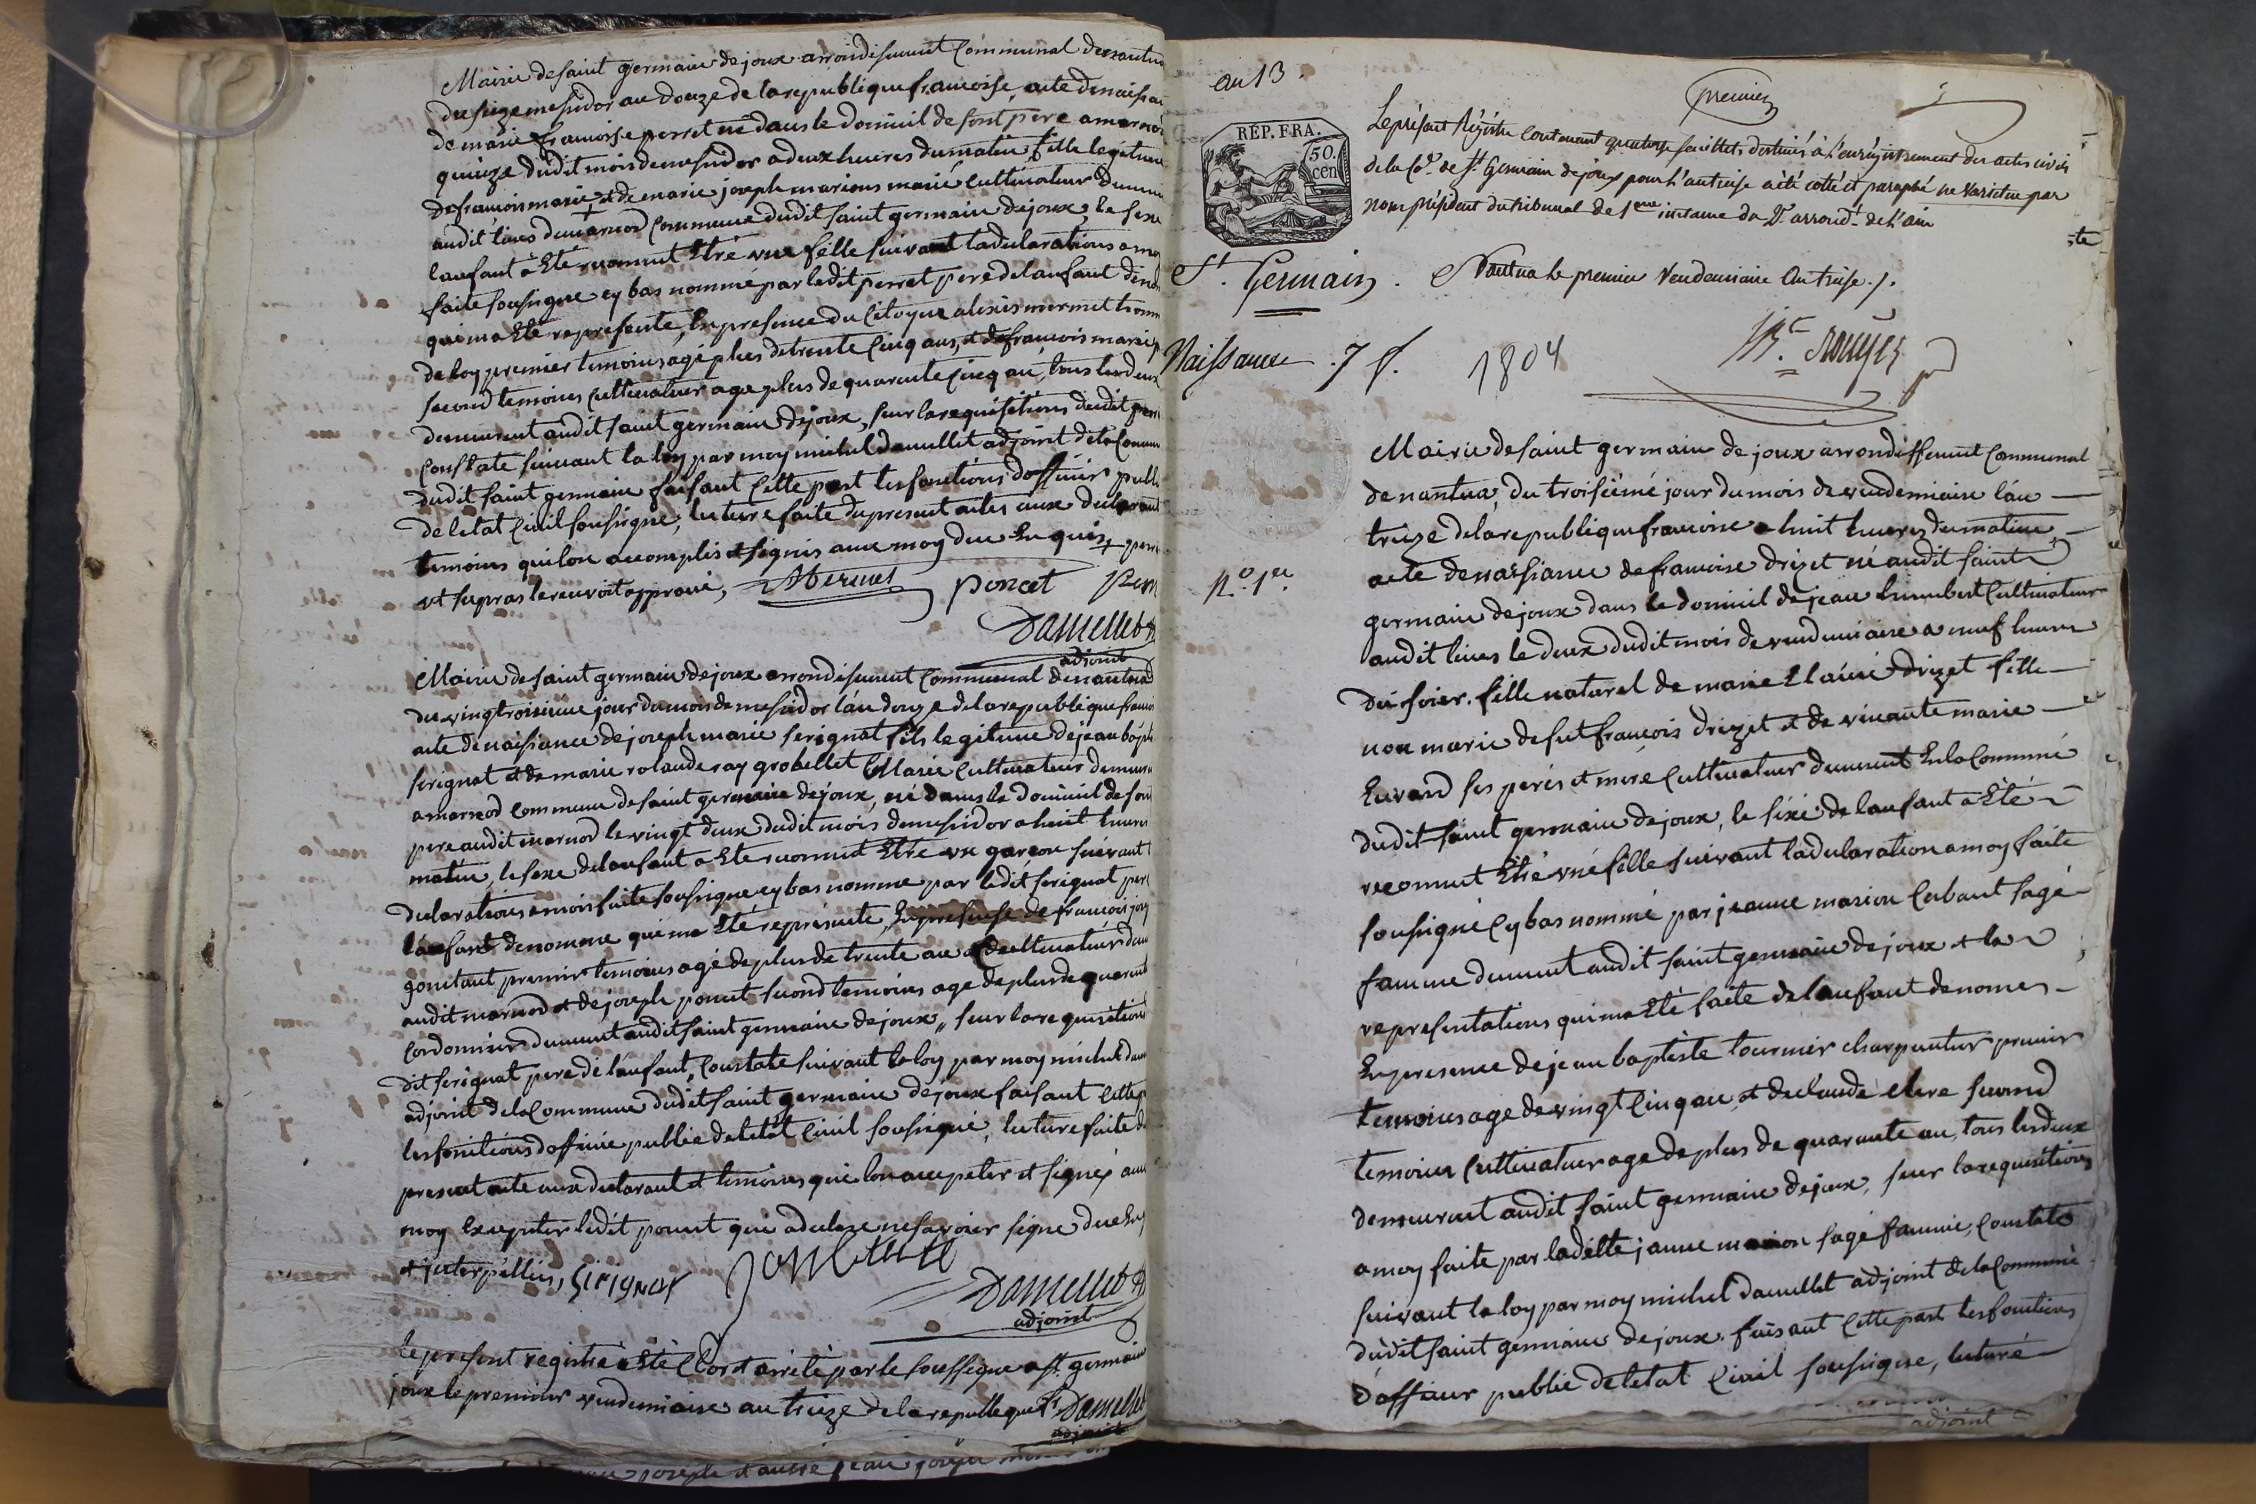 Mairie de saint germain de joux arrondisement Communal de nantu
du seize mesidor an douze de la republique francoise, acte de naisan
de marie francoise perret né dans le domicil de sont pere a marnod
quinze dudit mois de mesidor a deux heures du matin fille legitime
de francois marie et de marie joseph marions marié Cultivateur
audit lieus de marnod Commune dudit saint germain de joux, le sexe
lanfant à Ete reconnut Etre une fille suivant la declarations a moy
faite sousigne cy bas nommé par ledit perret pere de lanfant deno
qui ma Eté represente, En presence du Citoyen alexis mermet
de loy premier temoins agé plus de trente Cinq ans, et de francois marie
second temoins Cultivateur age plus de quarante Cinq an, tous les deux
demeurent audit saint germain de joux, sur la requisitions dudit perr
Constate suivant la loy par moy michel damellet adjoint de la Comm
dudit saint germain faisant Cette part les fonctions dofficier publi
de letat Civil sousigne, luture faite du present actes aux declarant
temoins quilon acomplis et signés avec moy
et supras le renvoit approuvé, Mermet poncet perr
Damellet
adjoint
Mairie de saint germain de joux arrondisement Communal de nantua
du vingtroisieme jour du mois de mesidor lan douze de la republique franco
acte de naissance de joseph marie serignat fils legitime de jean bapti
serignat et de marie rolande ray grobellet Marié Cultivateur demeur
a marnod commune de saint germain de joux, né dans le domicil de son
pere audit marnod le vingt deux dudit mois de mesidor a huit heures
matin, le sexe de lanfant a Ete reconnut Etre un garcon suivant
declarations a mois faite sousigne cy bas nomme par ledit serignat pere
lanfant denomme qui ma Eté represente, En presense de francois jos
gonitant premier temoins agé de plus de trente an Cultivateur dem
audit marnod et de joseph poncet second temoins age de plus de quarent
Cordonnier demeurent audit saint germain de joux, sur la requisitions
dit serignat pere de lanfant, Constate suivant la loy par moy michel dam
adjoint de la Commune dudit saint germain de joux faisant Cette
les fonctions dofficie publie de letat Civil sousigné, luture faite d
present acte aux declarant et temoins qui lon accepter et signés avec
moy Excepter ledit poncet qui a declare ne savoir signe
et interpellés, Sirignat
Damellet
adjoint
Le present registre a Eté Clors et arrêté par le soussigne a st. germain
joux le premier vendemiaire an treize de la republeque Damellet
adjoint
joseph
an 13.
premier
RÉP. FRA.
50.
cen
Le présent Régistre contenant quatorze feuillets destinés à l'enrégistrement des actes civils
de la Cne. de St Germain de joux pour l'an treise a été cotté et paraphé ne varietur par
nous président du tribunal de 1ere instance du arrondt. de l'ain
St. Germain. Nantua le premier Vendemiaire an treise ./.
Naissance. 7 f. 1804
Rouyer
Mairie de saint germain de joux arrondissement Communal
de nantua, du troisiemé jour du mois de vendemiaire lan
treize de la republique francoise a huit heures du matin
N.o 1er
acte de naissance de francoise drizet né audit saint
germain de joux dans le domicil de jean humbert Cultivateur
audit lieus le deux dudit mois de vendemiaire a neuf heures
du soier. fille naturel de marie Claire drizet fille
non marie de fut francois drizet et de vivante marie
Euvrard ses perés et mere Cultivateur demeurent En la Commune
dudit saint germain de joux, le sexe de lanfant a Eté
reconnut Etre une fille suivant la declaration a moy faite
sousigné Cy bas nommé par jeanne marion Cabant sagé
famme demeurent audit saint germain de joux et la
representations qui ma Eté faite de lanfant denomes
En presence de jean baptiste tournier charpentier premier
temoins age de vingt Cinq an, et de claude clere second
temoins Cultivateur age de plus de quarante an, tous les deux
demeurent audit saint germain de joux, sur la requisitions
a moy faite par laditte janne marion sage famme, Constate
suivant la loy par moy michel damellet adjoint de la Commune
dudit saint germain de joux faisant Cette part les fonctions
dofficier publie de letat Civil sousigne, luturé
adjoint